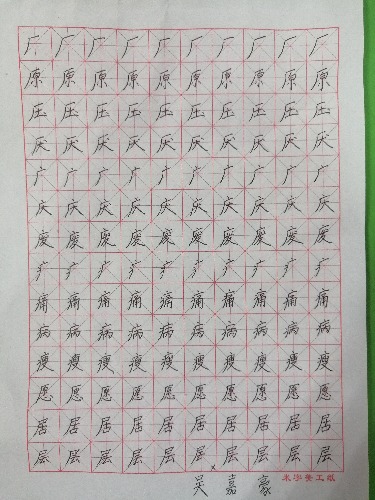 厂厂厂厂厂厂厂厂厂厂
原原原原原原原原原原
压压压压压压压压压压
厌厌厌厌厌厌厌厌厌厌
广广广广广广广广广广
庆庆庆庆庆庆庆庆庆庆
疒疒疒疒疒疒疒疒疒疒
痛痛痛痛痛痛痛痛痛痛
病病病病病病病病病病
瘦瘦瘦瘦瘦瘦瘦瘦瘦瘦
愿愿愿愿愿愿愿愿愿愿
居居居居居居居居居居
层层层层层层层层层层
吴嘉豪